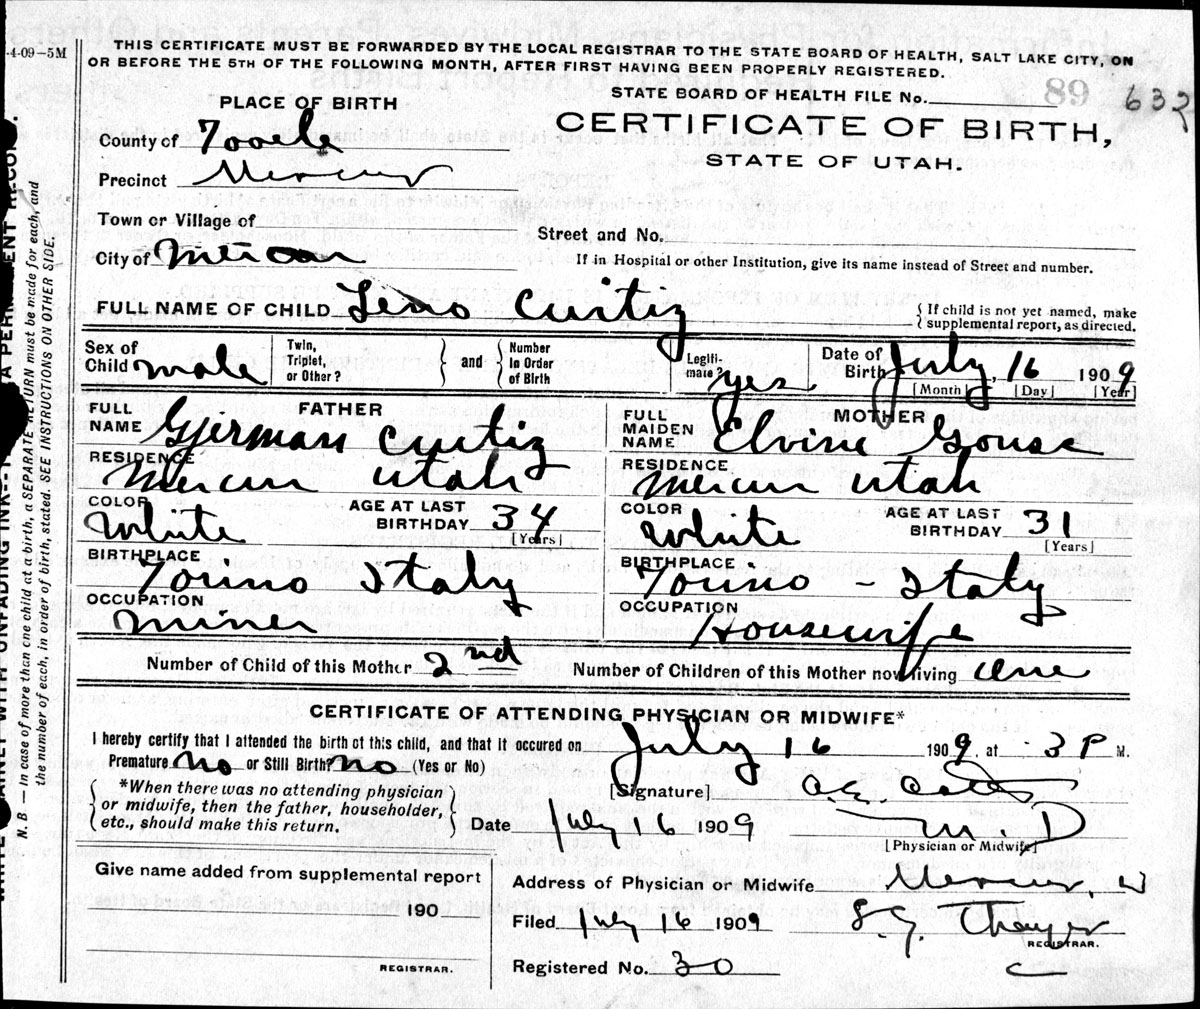 -4-09-5M
THIS CERTIFICATE MUST BE FORWARDED BY THE LOCAL REGISTRAR TO THE STATE BOARD OF HEALTH, SALT LAKE CITY, ON
OR BEFORE THE 5TH OF THE FOLLOWING MONTH, AFTER FIRST HAVING BEEN PROPERLY REGISTERED.
STATE BOARD OF HEALTH FILE No. 89 632
PLACE OF BIRTH
CERTIFICATE OF BIRTH,
STATE OF UTAH.
County of Tooele
Precinct Mercur
Town or Village of
Street and No.
City of Mercur
If in Hospital or other Institution, give its name instead of Street and number.
FULL NAME OF CHILD Leno Curtiz
{ If child is not yet named, make
supplemental report, as directed.
Sex of Child male
Twin, Triplet, or Other?
} and {
Number In Order of Birth
Legiti- mate? yes
Date of Birth July 16 1909
[Month] [Day] [Year]
FATHER
FULL NAME Gjerman Curtiz
RESIDENCE Mercur Utah
COLOR White
AGE AT LAST BIRTHDAY 34
[Years]
BIRTHPLACE Torino Italy
OCCUPATION miner
MOTHER
FULL MAIDEN NAME Elvine Gouse
RESIDENCE Mercur Utah
COLOR White
AGE AT LAST BIRTHDAY 31
[Years]
BIRTHPLACE Torino - Italy
OCCUPATION Housewife
Number of Child of this Mother 2nd
Number of Children of this Mother now living one
CERTIFICATE OF ATTENDING PHYSICIAN OR MIDWIFE*
I hereby certify that I attended the birth of this child, and that it occured on July 16 1909, at 3 P M.
Premature No or Still Birth? No (Yes or No)
*When there was no attending physician
or midwife, then the father, householder,
etc., should make this return.
[Signature]
Date July 16 1909
M.D
[Physician or Midwife]
Give name added from supplemental report
190
REGISTRAR.
Address of Physician or Midwife Mercur, U
Filed July 16 1909 S. G. Thayer
REGISTRAR.
Registered No. 30
N. B. — In case of more than one child at a birth, a SEPARATE RETURN must be made for each, and
the number of each, in order of birth, stated. SEE INSTRUCTIONS ON OTHER SIDE.